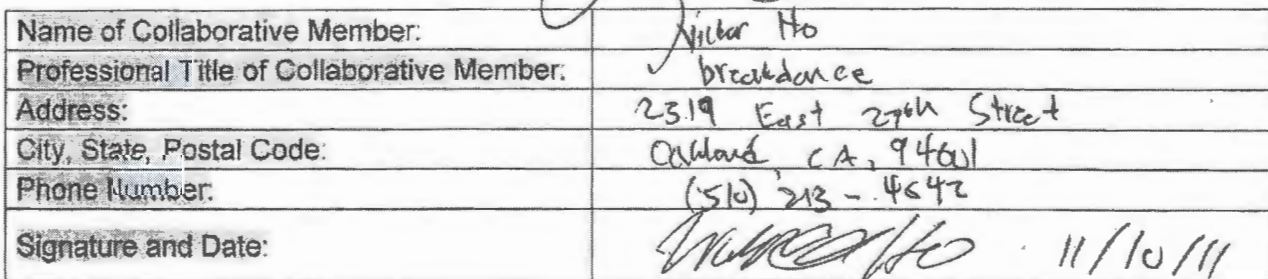 Name of Collaborative Member: Victor Ho
Professional Title of Collaborative Member: breakdance
Address: 2319 East 27th Street
City, State, Postal Code: Oakland, CA, 94601
Phone Number: (510) 213-4642
Signature and Date: 11/10/11